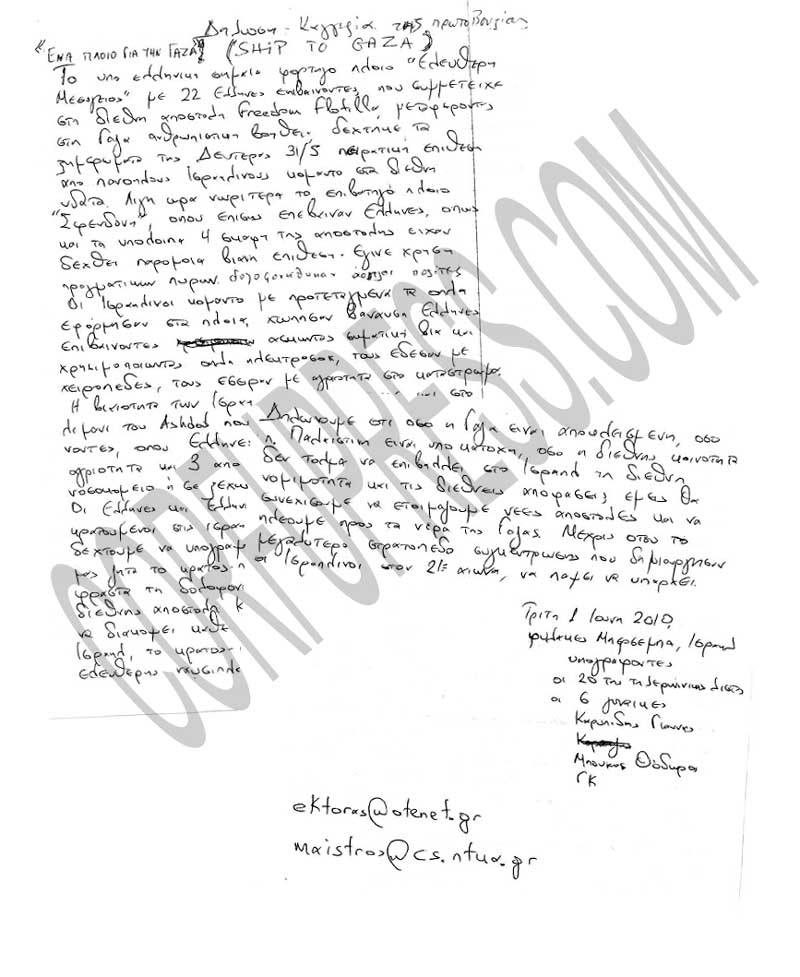 Δηλωση - Καγγελια της πρωτοβουλιας
"ΕΝΑ ΠΛΟΙΟ ΓΙΑ ΤΗΝ ΓΑΖΑ" (SHIP TO GAZA)
Το υπο ελληνικη σημαια φορτηγο πλοιο "Ελευθερη
Μεσογειος" με 22 Ελληνες επιβαινοντες, που συμμετειχε
στη διεθνη αποστολη Freedom Flotilla, μεταφεροντας
στη Γαζα ανθρωπιστικη βοηθεια, δεχτηκε τα
ξημερωματα της Δευτερας 31/5 πειρατικη επιθεση
απο πανοπλους Ισραηλινους κομαντο στα διεθνη
υδατα. Λιγη ωρα νωριτερα το επιβατηγο πλοιο
"Σφενδονη", οπου επισης επεβαιναν Ελληνες, οπως
και τα υπολοιπα 4 σκαφη της αποστολης ειχαν
δεχθει παρομοια βιαιη επιθεση. Εγινε χρηση
πραγματικων πυρων. δολοφονηθηκαν αοπλοι πολιτες
Οι Ισραηλινοι κομαντο με προτεταγμενα τα οπλα
εφορμησαν στα πλοια, χτυπησαν βαναυσα Ελληνες
επιβαινοντες ασκωντας σωματικη βια και
χρησιμοποιωντας οπλα ηλεκτροσοκ, τους εδεσαν με
χειροπεδες, τους εσυραν με αγριοτητα στο καταστρωμα.
Η βιαιοτητα των Ισραη
λιμανι του Ashdod που Δηλωνουμε οτι οσο η Γαζα ειναι αποκλεισμενη, οσο
νοντες, οπου Ελληνες η Παλαιστινη ειναι υπο κατοχη, οσο η διεθνης κοινοτητα
αγριοτητα και 3 απο δεν τολμα να επιβαλλει στο Ισραηλ τη διεθνη
νοσοκομειο η σε ξεχω νομιμοτητα και τις διεθνεις αποφασεις, εμεις θα
Οι Ελληνες και Ελλην συνεχισουμε να ετοιμαζουμε νεες αποστολες και να
κρατουμενοι στις Ισραη πλεουμε προς τα νερα της Γαζας. Μεχρις οτου το
δεχτουμε να υπογραψ μεγαλυτερο στρατοπεδο συγκεντρωσης που δημιουργησαν
μας ζητα το κρατος η οι Ισραηλινοι στον 21ο αιωνα, να παψει να υπαρχει.
φραστα τη δολοφονι
διεθνης αποστολη κ
να διακοψει καθε
Ισραηλ, το κρατος
ελευθερης ναυσιπλο
Τριτη 1 Ιουνη 2010
φυλακες Μπερσεμπα, Ισραηλ
υπογραφοντες
οι 20 της
οι 6 γυναικες
Καρυπιδης Γιαννης
Μπουκας Θοδωρας
ΓΚ
ektoras@otenet.gr
maistros@cs.ntua.gr
CORFUPRESS.COM